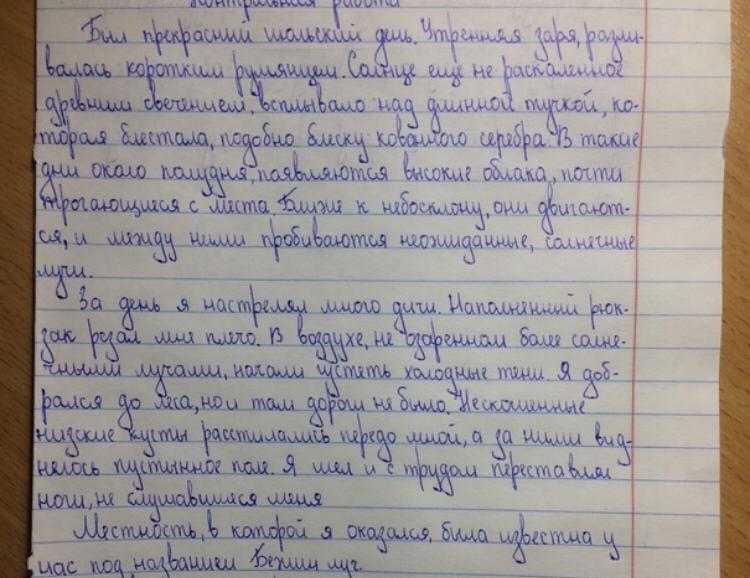 Контрольная работа
Был прекрасний июльский день. Утренняя заря, разли-
валась коротким румянцем. Солнце еще не раскаленное
древним свечением, всплывало над длинной тучкой, ко-
торая блестала, подобно блеску кованного серебра. В такие
дни около полудня, паявляются высокие облака, почти
трогающиеся с места. Ближе к небосклону, они двигают-
ся, и между ними пробиваются неожиданные, солнечные
лучи.
За день я настрелял много дичи. Наполненний рюк-
зак резал мне плечо. В воздухе, не озаренном более солне-
чными лучами, начали густеть холодные тени. Я доб-
рался до леса, но и там дороги не было. Нескошенные
низкие кусты расстилались передо мной, а за ними вид-
нелось пустынное поле. Я шел и с трудом переставлял
ноги, не слушавшиеся меня
Местность, в которой я оказался, была известна у
нас под названием Бежин луг.